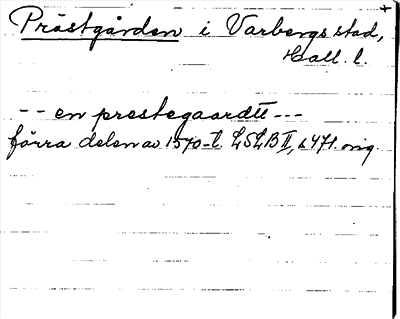 Prästgården i Varbergs stad,
Hall. l.
-- en prestegaardtt ---
förra delen av 1570-t. LSLB II, s 471. orig.